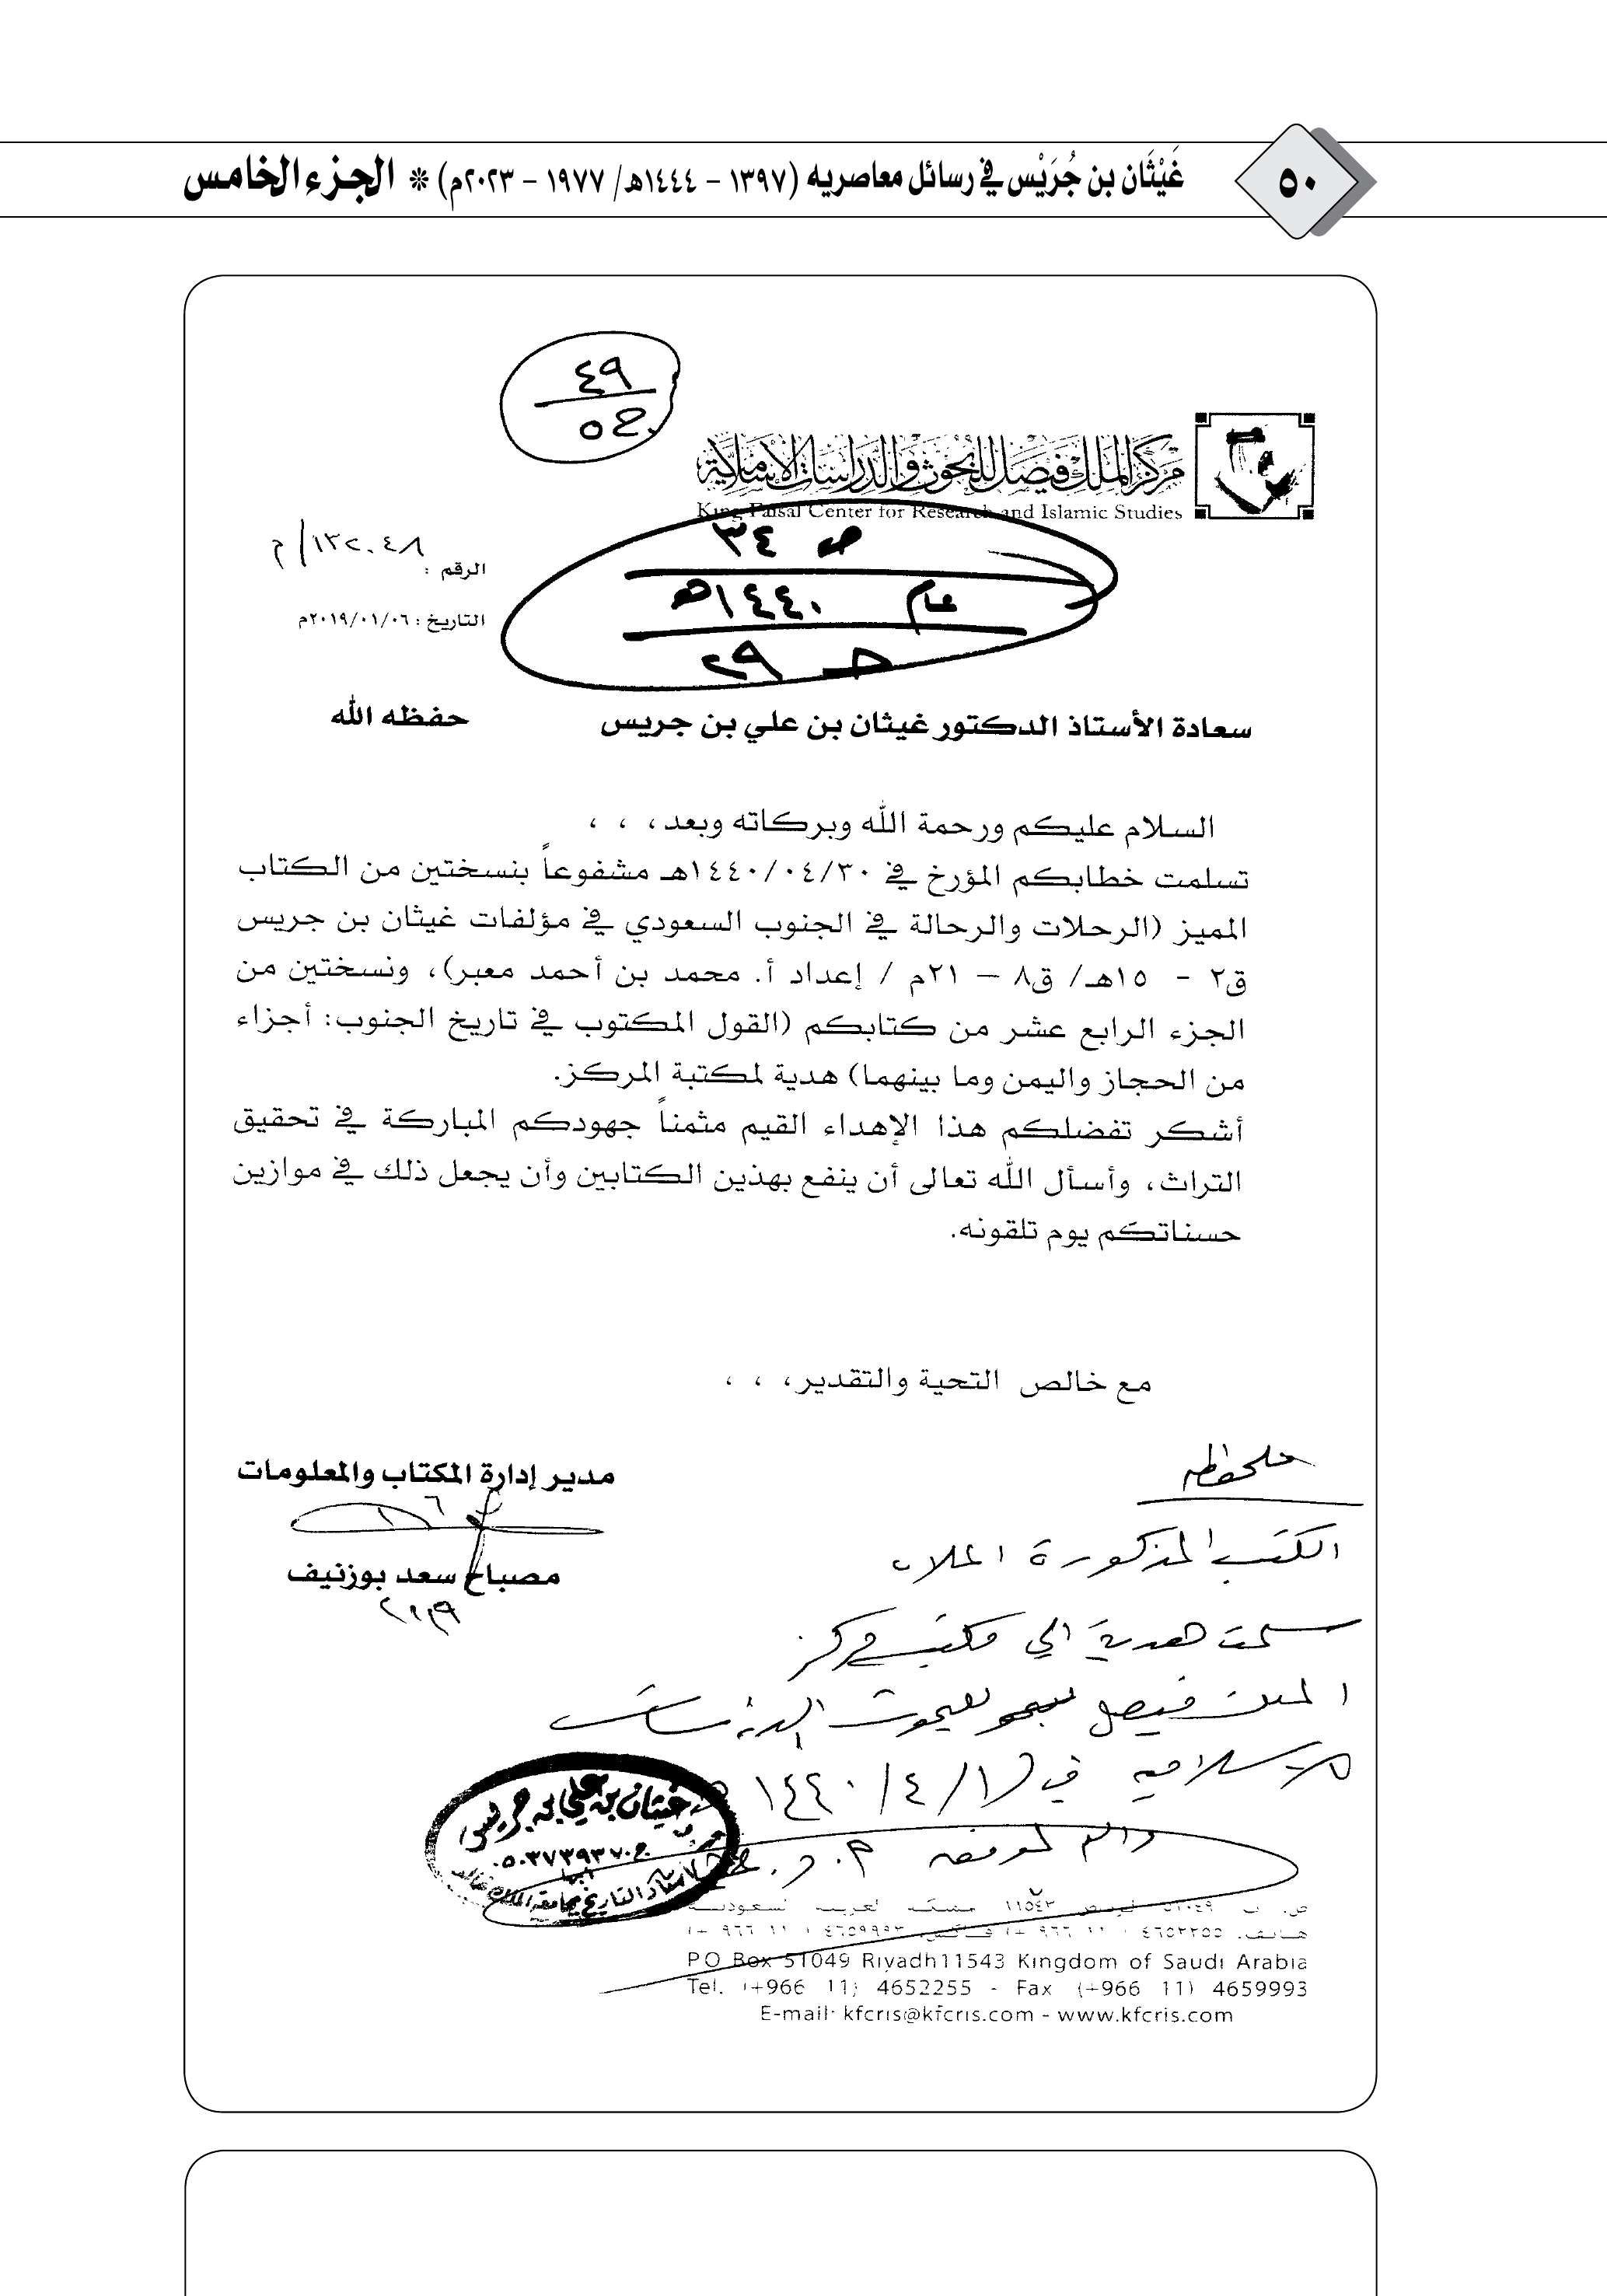 ٥٠
غَيْثَان بن جُرَيْس في رسائل معاصريه (١٣٩٧ - ١٤٤٤هـ/ ١٩٧٧ - ٢٠٢٣م) * الجزء الخامس
٤٩
ج٥
مركز الملك فيصل للبحوث والدراسات الإسلامية
King Faisal Center for Research and Islamic Studies
ص ٣٤
عام ١٤٤٠هـ
جـ ٢٩
الرقم : ١٣٢٠٤٨/م
التاريخ : ٢٠١٩/٠١/٠٦م
سعادة الأستاذ الدكتور غيثان بن علي بن جريس حفظه الله
السلام عليكم ورحمة الله وبركاته وبعد، ، ،
تسلمت خطابكم المؤرخ في ١٤٤٠/٠٤/٣٠هـ مشفوعاً بنسختين من الكتاب
المميز (الرحلات والرحالة في الجنوب السعودي في مؤلفات غيثان بن جريس
ق٢ - ١٥هـ/ ق٨ – ٢١م / إعداد أ. محمد بن أحمد معبر)، ونسختين من
الجزء الرابع عشر من كتابكم (القول المكتوب في تاريخ الجنوب: أجزاء
من الحجاز واليمن وما بينهما) هدية لمكتبة المركز.
أشكر تفضلكم هذا الإهداء القيم مثمناً جهودكم المباركة في تحقيق
التراث، وأسأل الله تعالى أن ينفع بهذين الكتابين وأن يجعل ذلك في موازين
حسناتكم يوم تلقونه.
مع خالص التحية والتقدير، ، ،
مدير إدارة المكتاب والمعلومات
مصباح سعد بوزنيف
ملحوظه
الكتب المذكورة اعلاه
سلمت هدية الى مكتبة مركز
الملك فيصل للبحوث والدراسات
الاسلاميه في ١/٤/١٤٤٠هـ
والله الموفق
غيثان بن علي بن جريس
ج٠٥٠٣٧٣٩٣٧٠
ابها
أستاذ التاريخ بجامعة الملك خالد
ص. ب ٥١٠٤٩ الرياض ١١٥٤٣ المملكة العربية السعودية
هاتف. ٤٦٥٢٢٥٥ ١١ ٩٦٦ +) فاكس. ٤٦٥٩٩٩٣ ١١ ٩٦٦ +)
P O Box 51049 Riyadh11543 Kingdom of Saudi Arabia
Tel. (+966 11) 4652255 - Fax (+966 11) 4659993
E-mail: kfcris@kfcris.com - www.kfcris.com